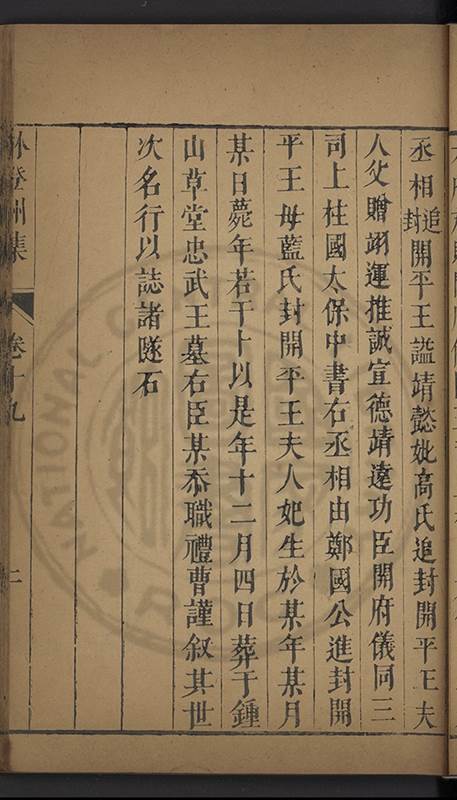 丞相追封開平王諡靖懿妣高氏追封開平王夫
人父贈翊運推誠宣德靖遠功臣開府儀同三
司上柱國太保中書右丞相由鄭國公進封開
平王母藍氏封開平王夫人妃生於某年某月
某日薨年若干十以是年十二月四日葬于鍾
山草堂忠武王墓右臣某忝職禮曹謹叙其世
次名行以誌諸隧石
孫登州集 卷十九 二